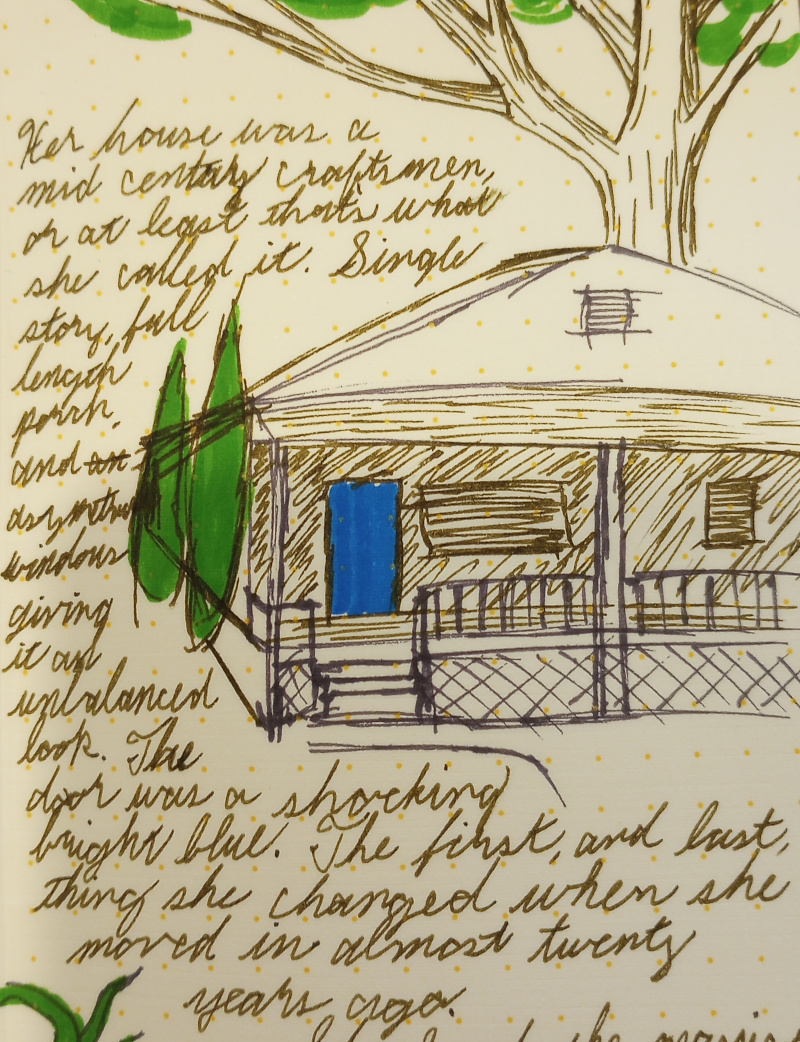 Her house was a
mid century craftsmen,
or at least that's what
she called it. Single
story, full
length
porch,
and an
windows
giving
it an
unbalanced
look. The
door was a shocking
bright blue. The first, and last,
thing she changed when she
moved in almost twenty
years ago.
the